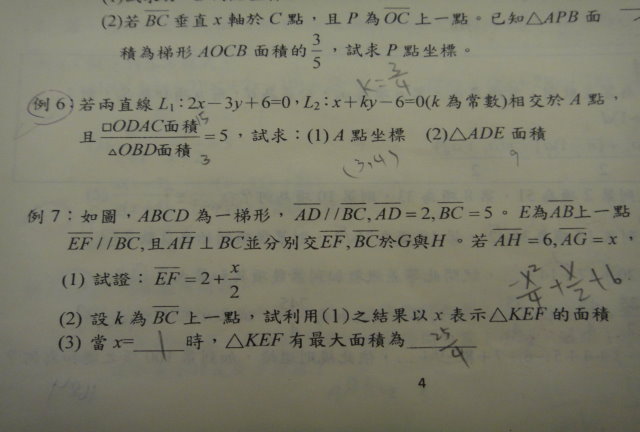 (2)若 BC 垂直 x 軸於 C 點，且 P 為 OC 上一點。已知△APB 面
積為梯形 AOCB 面積的 3/5，試求 P 點坐標。
K=3/4
例 6：若兩直線 L₁：2x－3y＋6=0，L₂：x＋ky－6=0(k 為常數)相交於 A 點，
且 □ODAC面積/△OBD面積 = 5，試求：(1) A 點坐標 (2)△ADE 面積
15
3
(3,4)
9
例 7：如圖，ABCD 為一梯形，AD//BC, AD＝2, BC＝5。E為AB上一點
EF//BC,且AH⊥BC並分別交EF, BC於G與H。若 AH＝6, AG＝x，
(1) 試證：EF＝2＋x/2
-x²/4+x/2+6
(2) 設 k 為 BC 上一點，試利用(1)之結果以 x 表示△KEF 的面積
(3) 當 x= 1 時，△KEF 有最大面積為 25/4
4